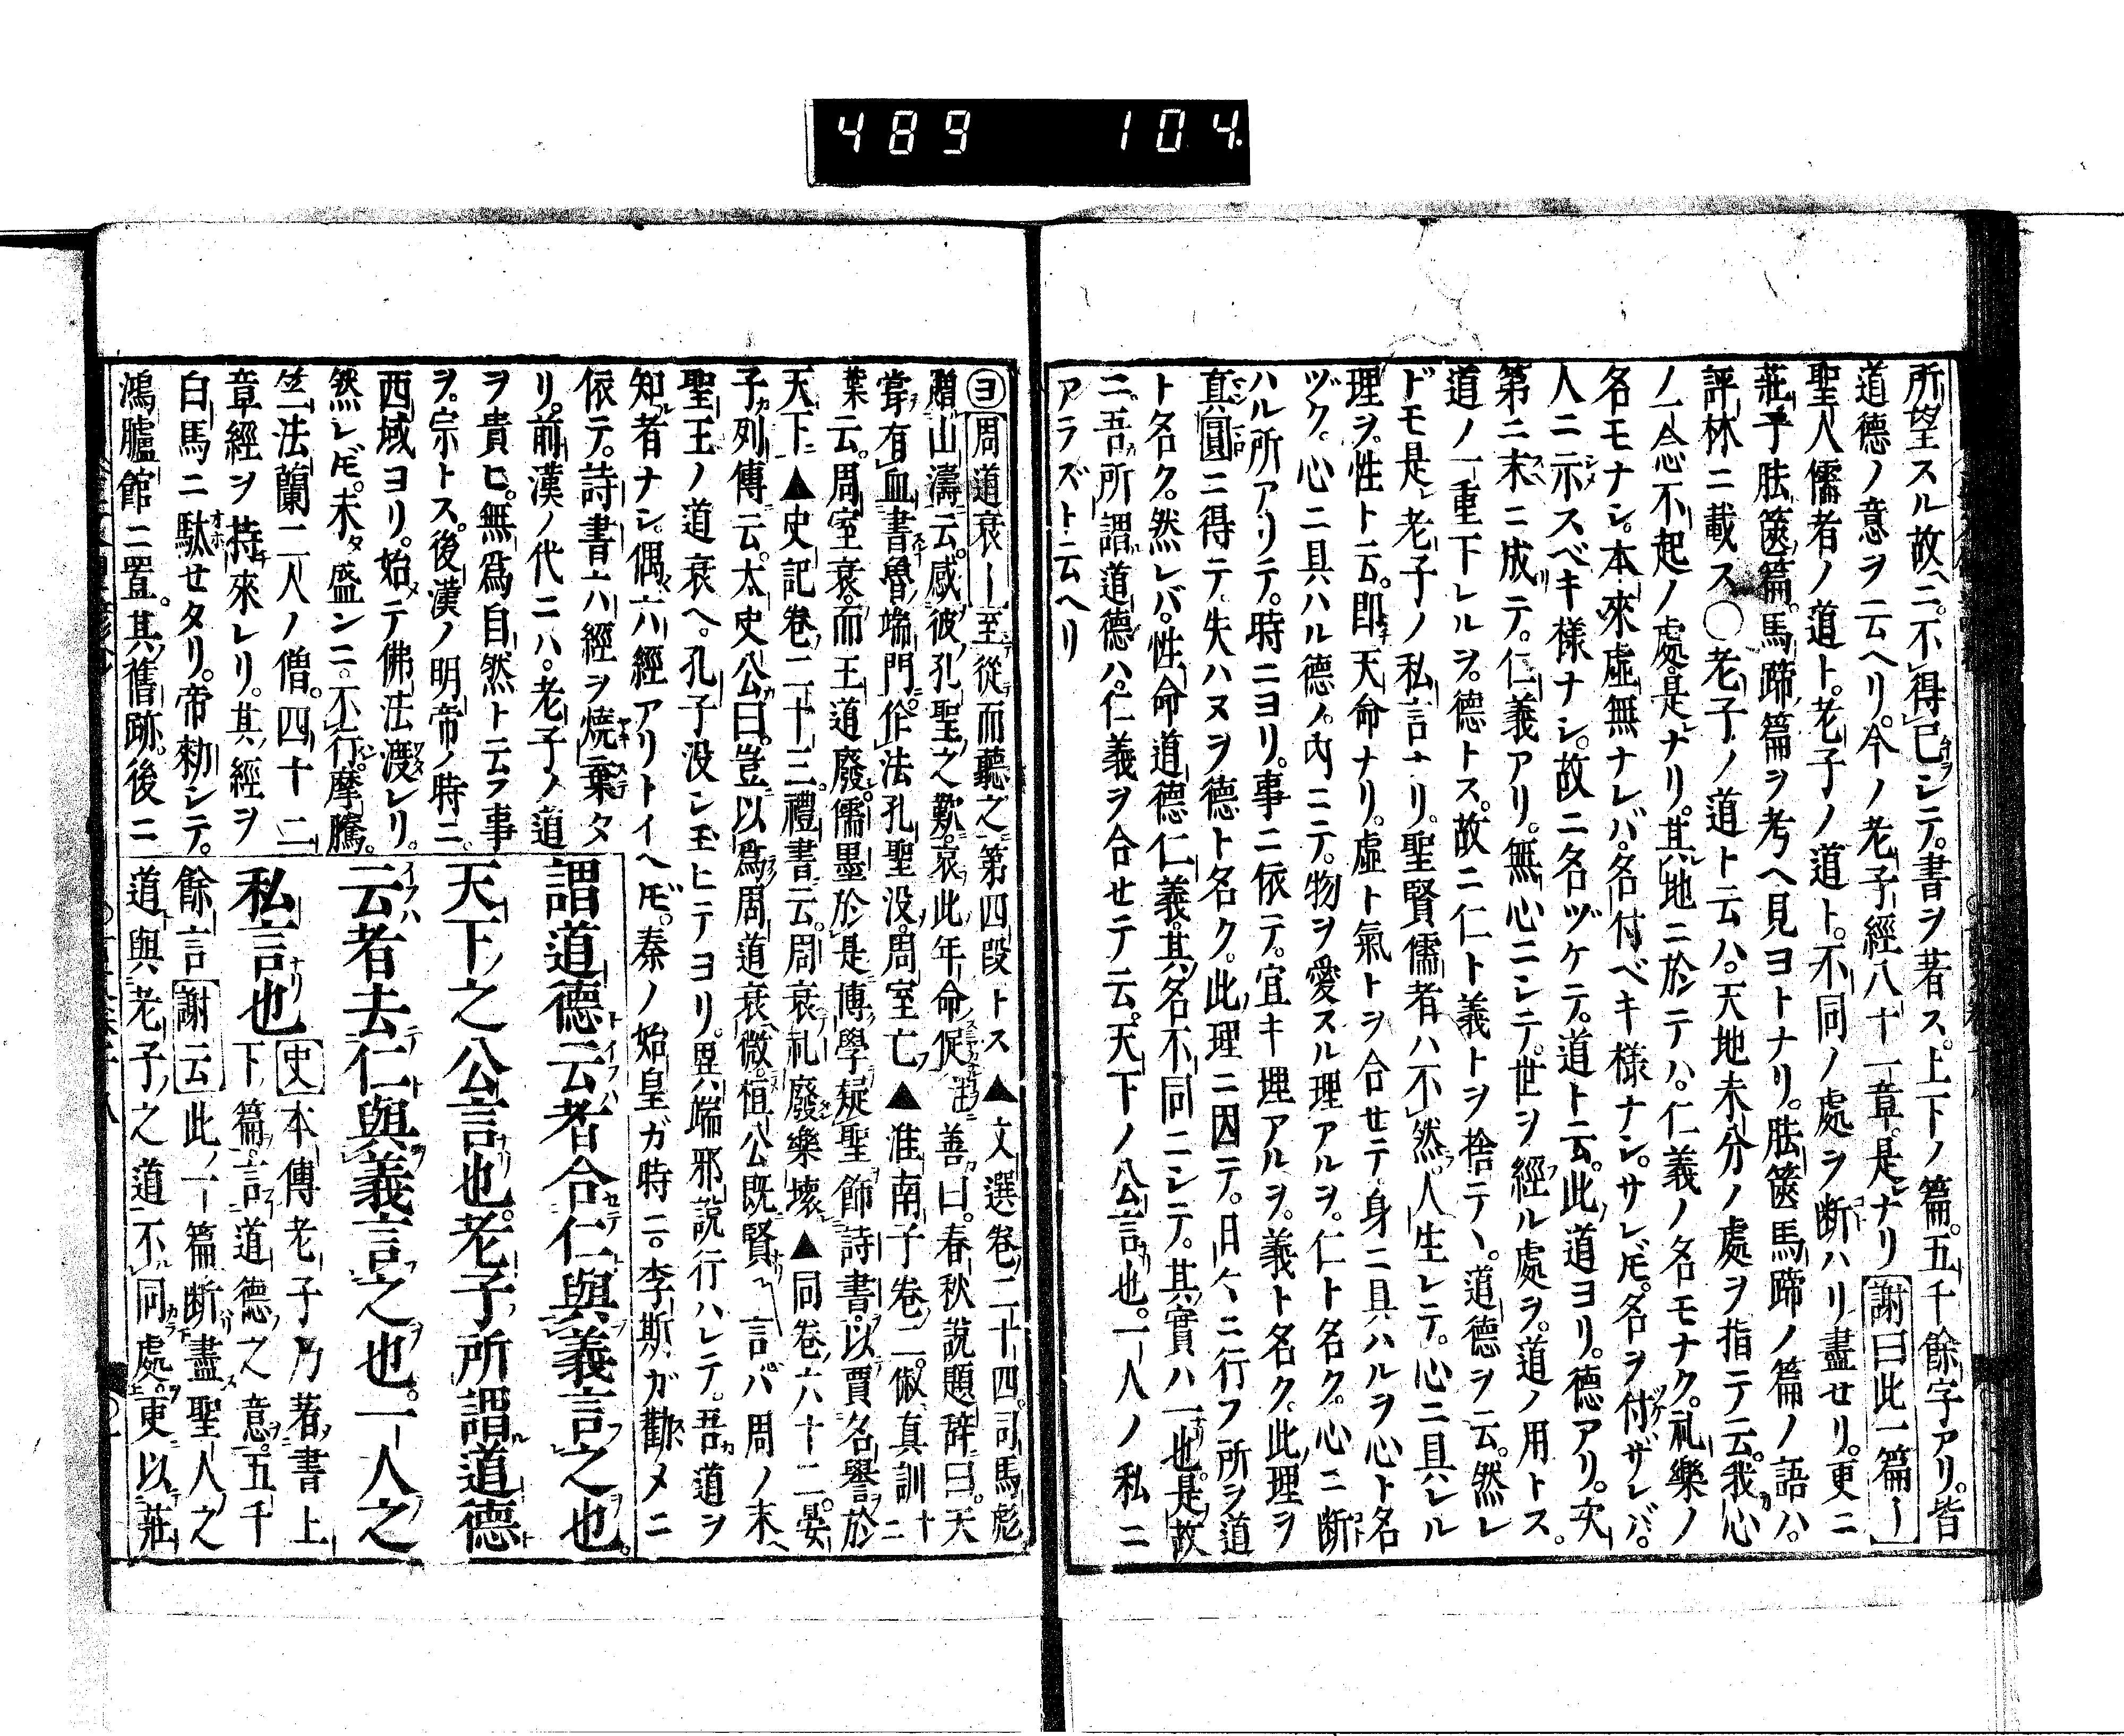 489 104
所望スル故ニ。不得已シテ。書ヲ著ス。上下ノ篇。五千餘字アリ。皆
道德ノ意ヲ云ヘリ。今ノ老子經八十一章。是ナリ 謝曰此一篇〡
聖人儒者ノ道ト。老子ノ道ト。不同ノ處ヲ断ハリ盡セリ。更ニ
莊子胠篋篇。馬蹄篇ヲ考ヘ見ヨトナリ。胠篋馬蹄ノ篇ノ語ハ。
評林ニ載ス〇老子ノ道ト云ハ。天地未分ノ處ヲ指テ云。我心
ノ一念不起ノ處。是ナリ。其地ニ於テハ。仁義ノ名モナク。礼樂ノ
名モナシ。本來虚無ナレバ。名付ベキ様ナシ。サレ𪜈。名ヲ付ザレバ。
人ニ示スベキ様ナシ。故ニ名ヅケテ。道ト云。此道ヨリ。德アリ。次
第ニ末ニ成テ。仁義アリ。無心ニシテ。世ヲ經ル處ヲ。道ノ用トス。
道ノ一重下レルヲ。德トス。故ニ仁ト義トヲ捨テヽ。道德ヲ云。然レ
ドモ是老子ノ私言ナリ。聖賢儒者ハ不然。人生レテ。心ニ具レル
理ヲ。性ト云。即天命ナリ。虚ト氣トヲ合セテ身ニ具ハルヲ心ト名
ヅク。心ニ具ハル德ノ内ニテ。物ヲ愛スル理アルヲ。仁ト名ク。心ニ断
ハル所アリテ。時ニヨリ。事ニ依テ。宜キ理アルヲ。義ト名ク。此理ヲ
真圓ニ得テ。失ハヌヲ德ト名ク。此理ニ因テ。日々ニ行フ所ヲ道
ト名ク。然レバ。性命道德仁義。其名不同ニシテ。其實ハ一也。是故
ニ。吾所謂道德ハ。仁義ヲ合セテ云。天下ノ公言也。一人ノ私ニ
アラズト云ヘリ
ヨ 周道衰〡至從而聽之第四段トス▲文選卷二十四。司馬彪
贈山濤云。感彼孔聖之歎。哀此年命促 註善曰。春秋說題辞曰。天
甞有血書魯端門。作法孔聖没。周室亡▲淮南子卷二。俶真訓十二
葉云。周室衰而王道廢。儒墨於是博學疑聖飾詩書以買名譽於
天下▲史記卷二十三。禮書云。周衰礼廢樂壞▲同卷六十二。晏
子列傳云。太史公曰。豈以為周道衰微。桓公既賢〡言バ周ノ末
聖王ノ道衰ヘ。孔子没シ玉ヒテヨリ。異端邪說行ハレテ。吾道ヲ
知者ナシ。偶六經アリトイヘ𪜈。秦ノ始皇ガ時ニ。李斯ガ勸メニ
依テ。詩書六經ヲ焼棄タ
リ。前漢ノ代ニハ。老子ノ道
ヲ貴ヒ。無為自然ト云フ事
ヲ。宗トス。後漢ノ明帝ノ時ニ。
西域ヨリ。始テ佛法渡レリ。
然レ𪜈。未タ盛ンニ。不行。摩騰。
竺法蘭二人ノ僧。四十二
章經ヲ持來レリ。其經ヲ
白馬ニ駄セタリ。帝勅シテ。
鴻臚館ニ置。其舊跡。後ニ
謂道德云者合仁與義言之也。
天下之公言也。老子所謂道德
云者去仁與義言之也。一人之
私言也 史本傳老子乃著書上
下篇。言道德之意。五千
餘言 謝云此一篇断盡聖人之
道與老子之道不同處。更以莊